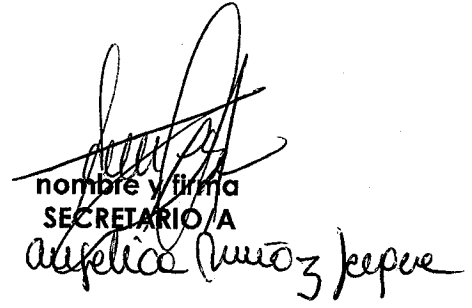 nombre y firma
SECRETARIO/A
angelica muñoz